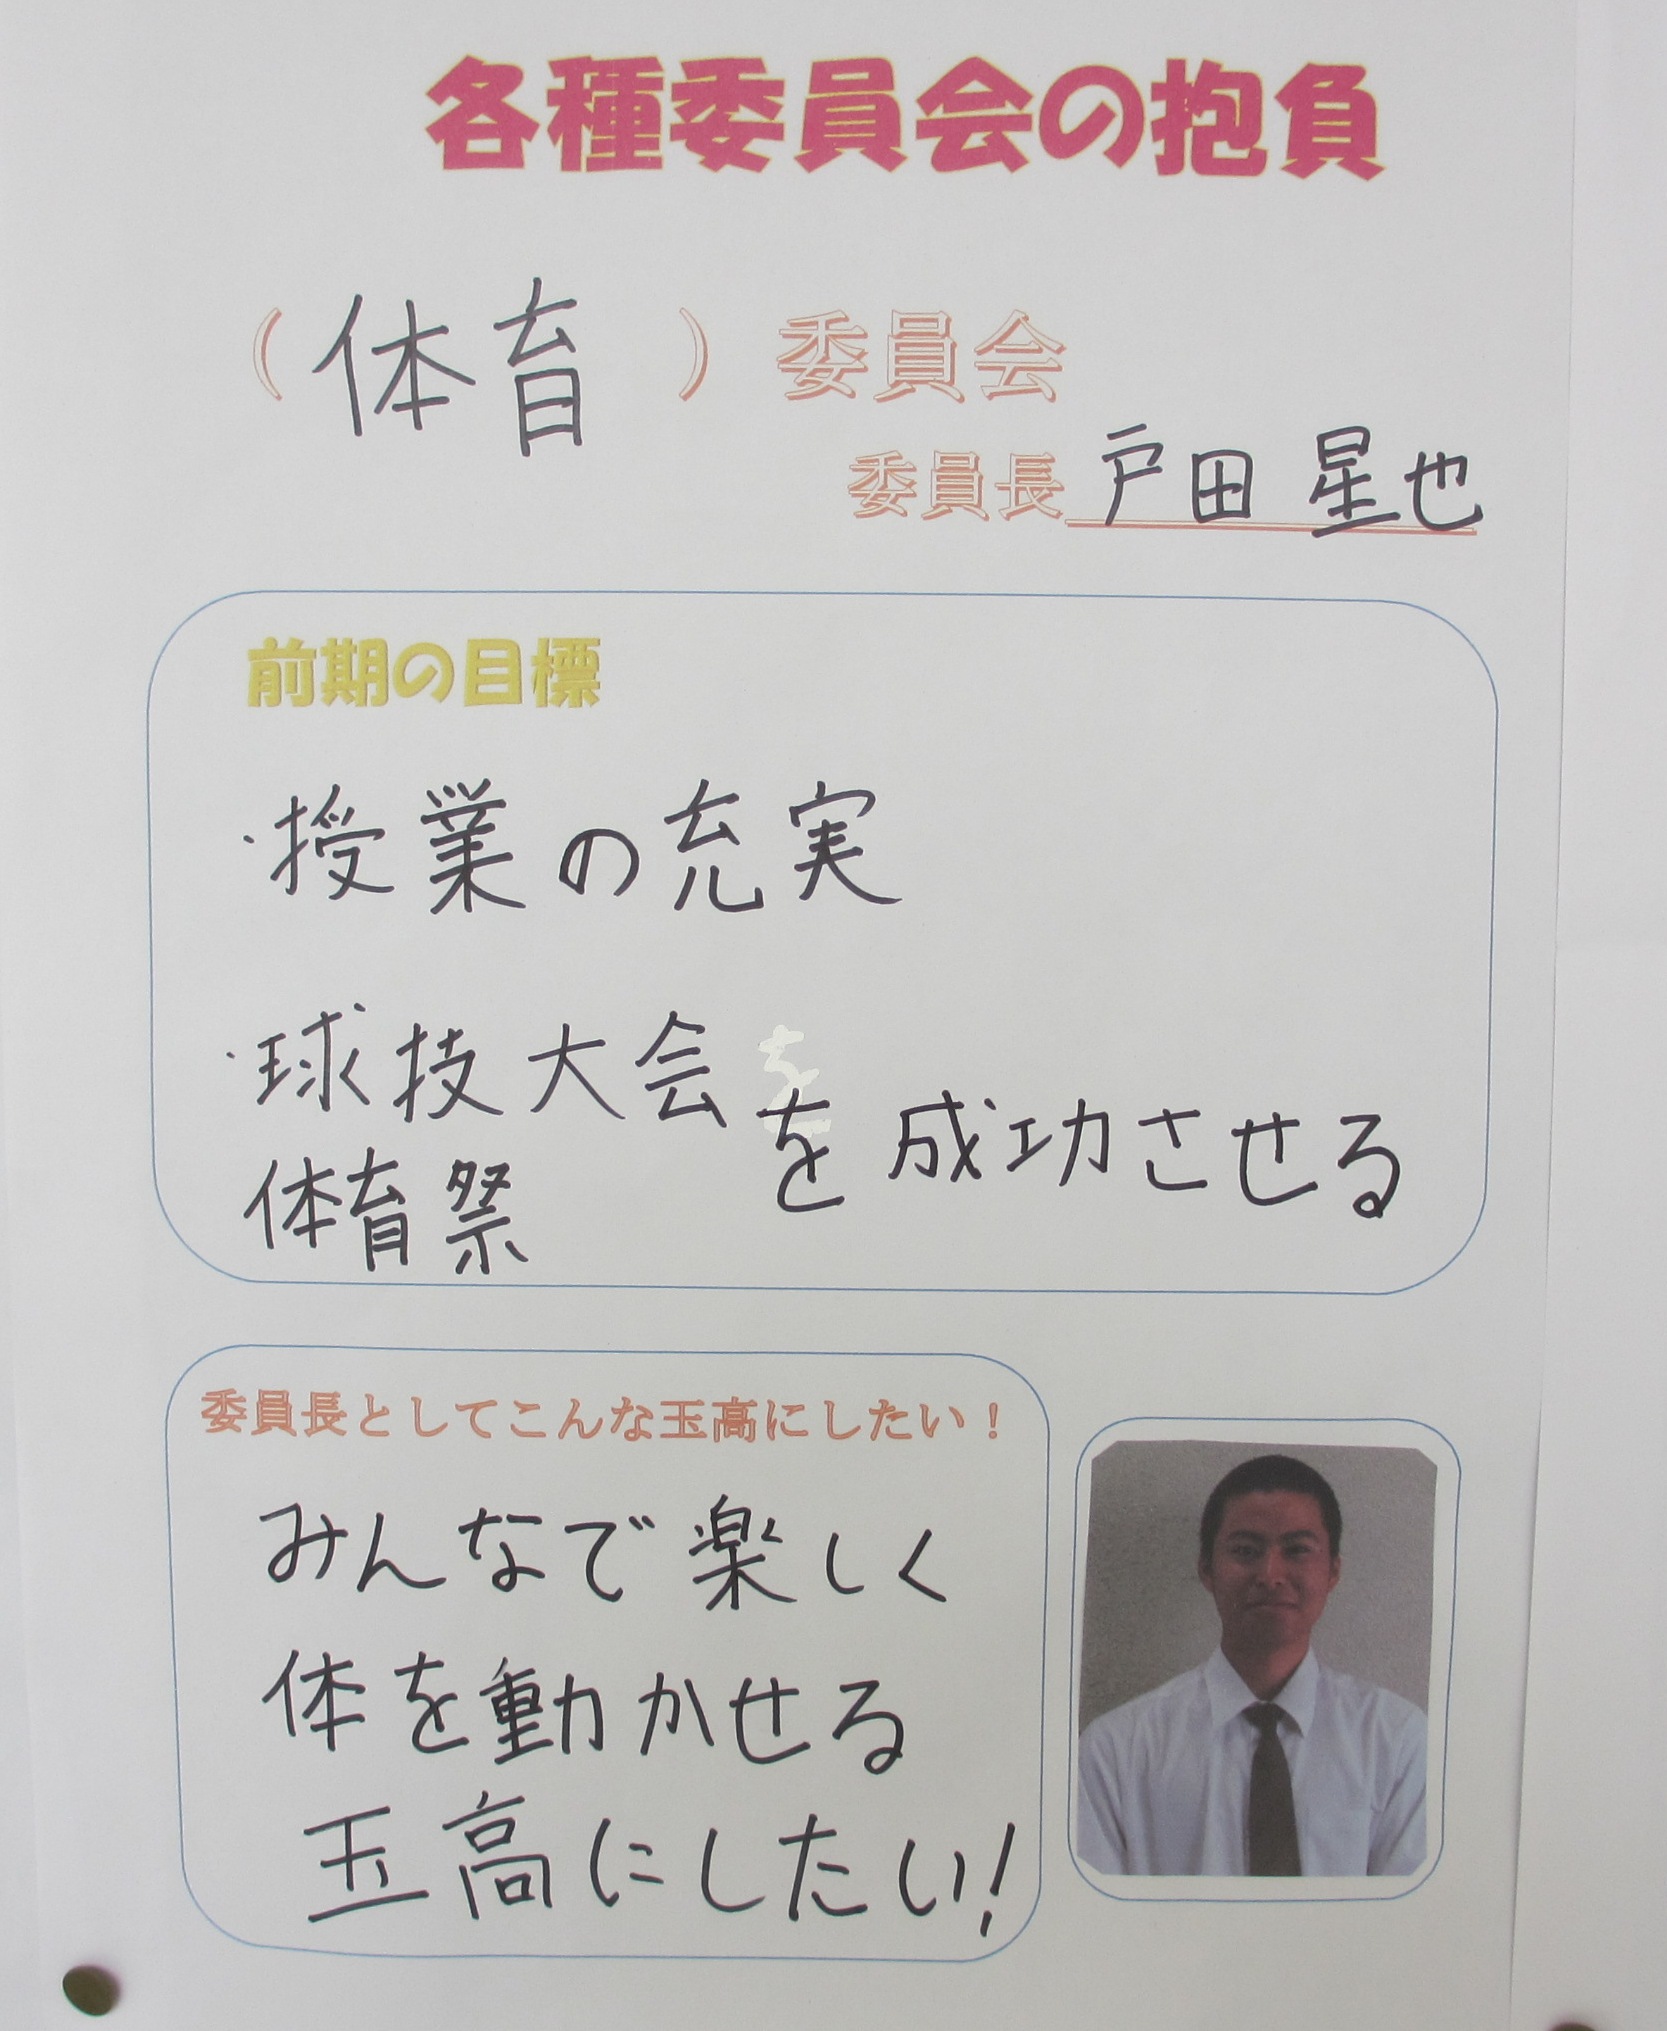 各種委員会の抱負
（体育）委員会
委員長 戸田 星也
前期の目標
・授業の充実
・球技大会
を成功させる
体育祭
委員長としてこんな玉高にしたい！
みんなで楽しく
体を動かせる
玉高にしたい！